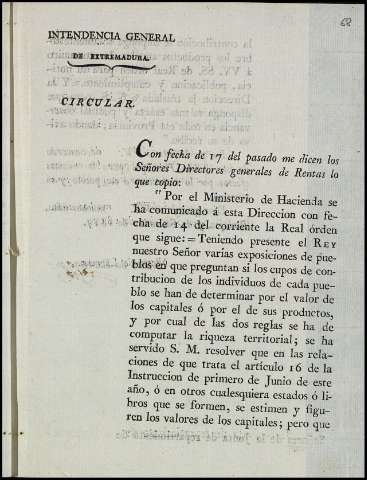 INTENDENCIA GENERAL
DE EXTREMADURA.
CIRCULAR.
Con fecha de 17 del pasado me dicen los
Señores Directores generales de Rentas lo
que copio:
"Por el Ministerio de Hacienda se
ha comunicado á esta Direccion con fe-
cha de 14 del corriente la Real órden
que sigue: = Teniendo presente el REY
nuestro Señor varias exposiciones de pue-
blos en que preguntan si los cupos de con-
tribucion de los individuos de cada pue-
blo se han de determinar por el valor de
los capitales ó por el de sus productos,
y por cual de las dos reglas se ha de
computar la riqueza territorial; se ha
servido S. M. resolver que en las rela-
ciones de que trata el artículo 16 de la
Instruccion de primero de Junio de este
año, ó en otros cualesquiera estados ó li-
bros que se formen, se estimen y figu-
ren los valores de los capitales; pero que